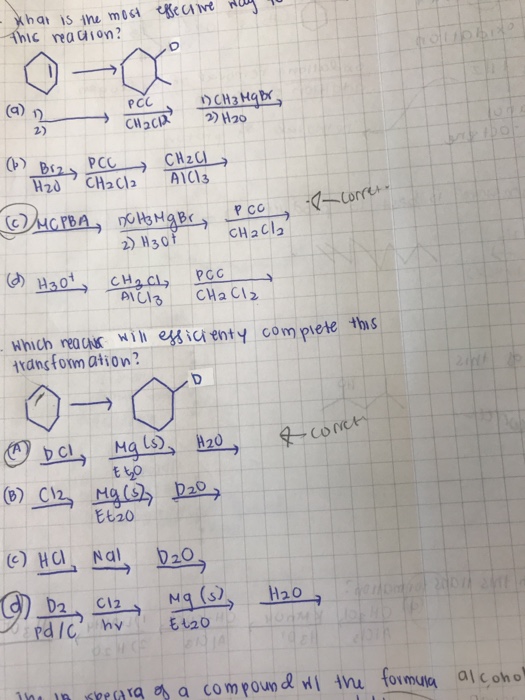 . What is the most effective way
this reaction?
D
(a) 1) 2) PCC CH2Cl2 1) CH3MgBr 2) H2O
(b) Br2 H2O PCC CH2Cl2 CH2Cl AlCl3
(c) MCPBA 1) CH3MgBr 2) H3O+ PCC CH2Cl2
(d) H3O+ CH3Cl AlCl3 PCC CH2Cl2
. Which will efficienty complete this
transformation?
D
(A) DCl Mg(s) Et2O H2O
(B) Cl2 Mg(s) Et2O D2O
(c) HCl NaI D2O
(d) D2 Pd/C Cl2 hv Mg(s) Et2O H2O
of a compound w/ the formula alcohol